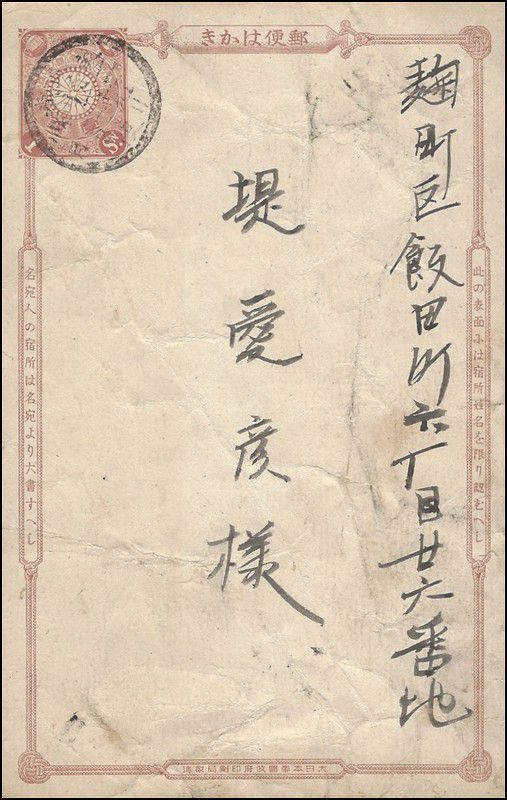 郵便はかき
麹町区飯田町六丁目廿六番地
堤愛彦様
此の表面には宿所姓名を限り認むへし
名宛人の宿所は名宛より大書すへし
大日本帝國政府印刷局製造